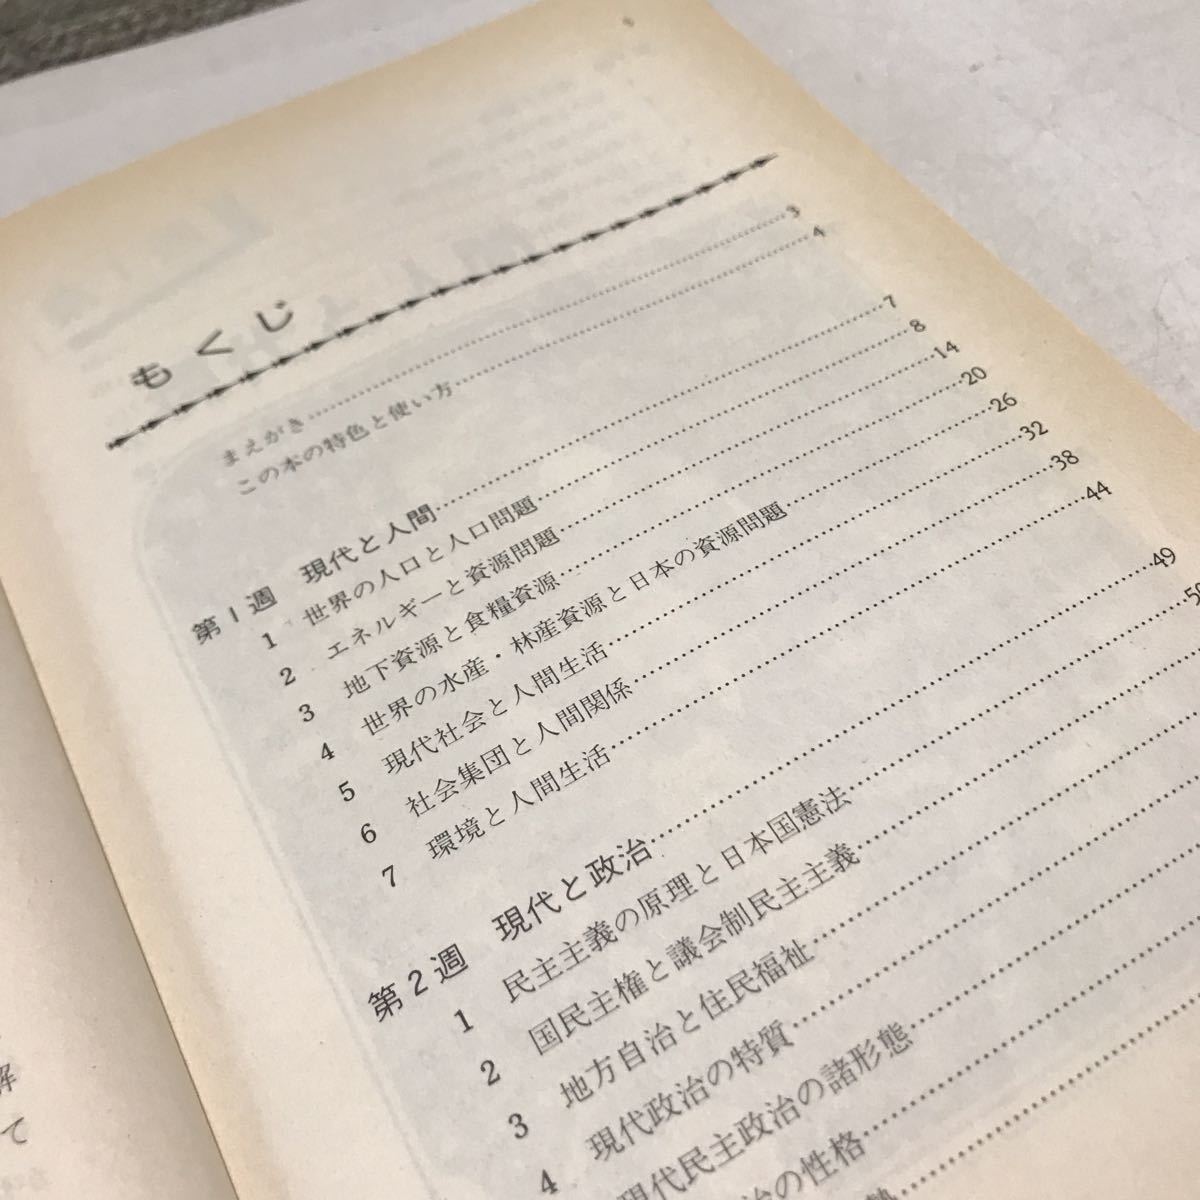 もくじ
まえがき 3
この本の特色と使い方 4
第1週 現代と人間 7
1 世界の人口と人口問題 8
2 エネルギーと資源問題 14
3 地下資源と食糧資源 20
4 世界の水産・林産資源と日本の資源問題 26
5 現代社会と人間生活 32
6 社会集団と人間関係 38
7 環境と人間生活 44
第2週 現代と政治 49
1 民主主義の原理と日本国憲法 50
2 国民主権と議会制民主主義
3 地方自治と住民福祉
4 現代政治の特質
現代民主政治の諸形態
治の性格
解
て